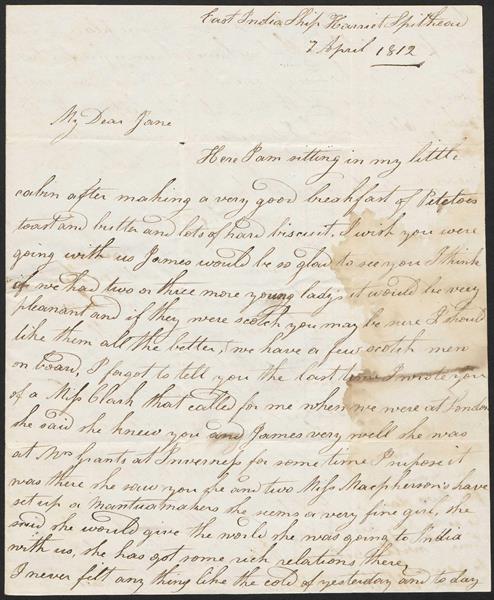 East India Ship Harriet Spithead
7 April 1812
My Dear Jane
Here I am sitting in my little
cabin after making a very good breakfast of Potatoes
toast and butter and lots of hard biscuit, I wish you were
going with us James would be so glad to see you I think
if we had two or three more young lady's it would be very
pleasant and if they were scotch you may be sure I should
like them all the better, we have a few scotch men
on board, I forgot to tell you the last time I wrote you
of a Miss Clark that called for me when we were at London
she said she knew you and James very well she was
at Mrs Grants at Inverness for some time I supose it
was there she saw you she and two Miss Macpherson's have
set up a Mantuamakers she seems a very fine girl, she
said she would give the world she was going to India
with us, she has got some rich relations there
I never felt any thing like the cold of yesterday and to day